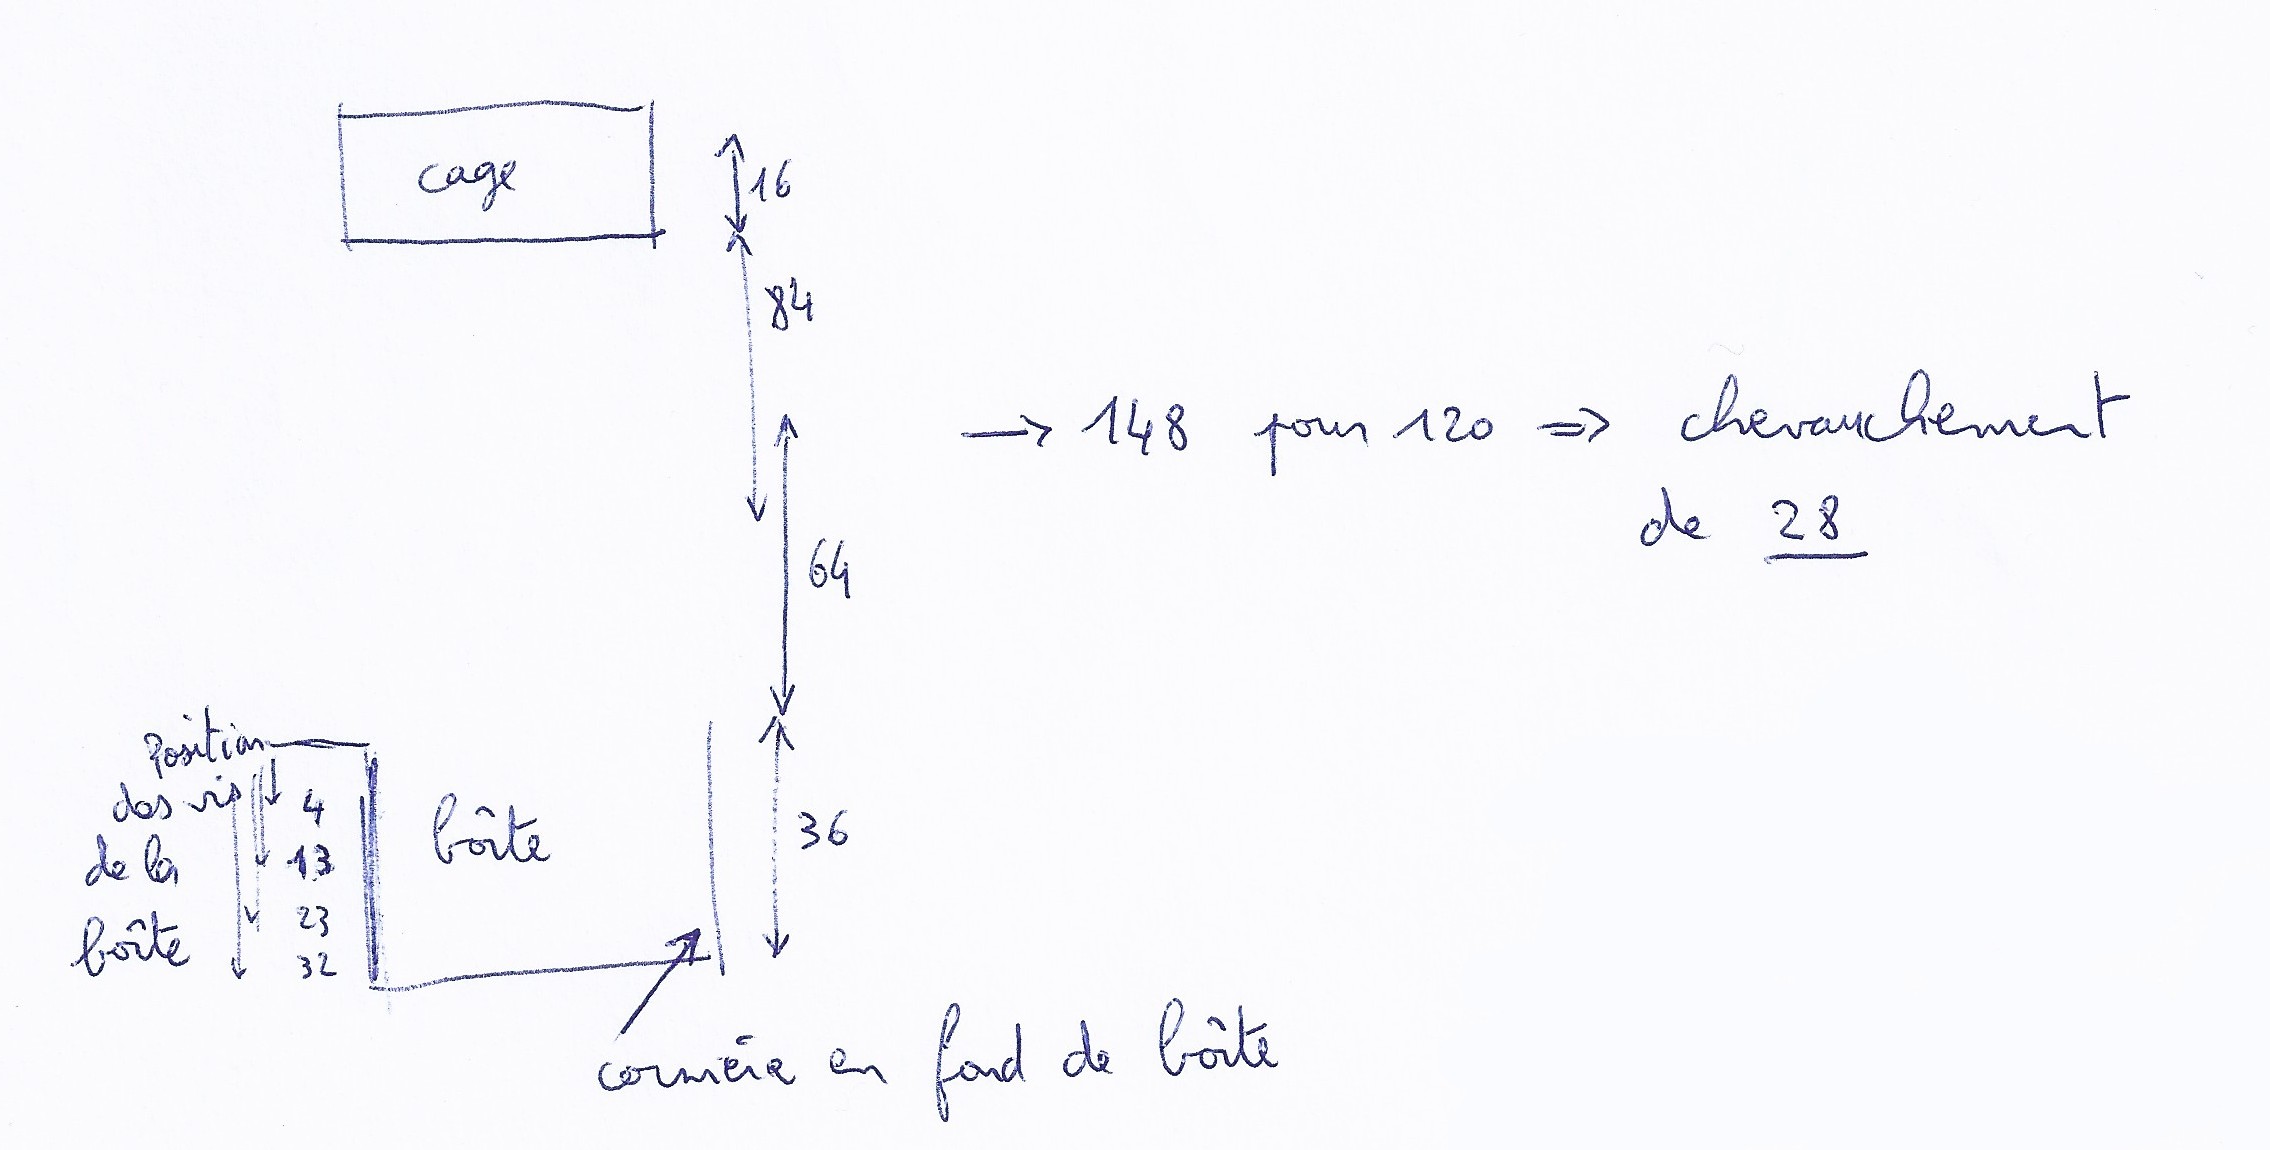 cage
16
84
→ 148 pour 120 ⇒ chevauchement
de 28
64
Position
des vis
de la
boîte
4
13
23
32
boîte
36
cornière en fond de boîte